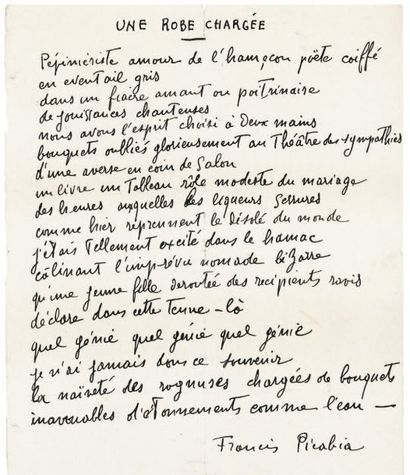 UNE ROBE CHARGÉE
Pépiniériste amour de l'hameçon poëte coiffé
en eventail gris
dans un fiacre amant ou poitrinaire
de jouissances chanteuses
nous avons l'esprit choisi à Deux mains
bouquets oubliés glorieusement au Théâtre des sympathies
d'une averse en coin de Salon
un livre un Tableau rôle modeste du mariage
des heures auxquelles les liqueurs
comme hier reprennent le désolé du monde
j'étais Tellement excité dans le hamac
câlinant l'imprévu nomade bizarre
qu'une jeune fille deroutée des recipients ravis
déclare dans cette Tenue-là
quel génie quel génie quel génie
je n'ai jamais dans ce souvenir
la naïveté des rognures chargées de bouquets
inavouables d'etonnements comme l'eau —
Francis Picabia